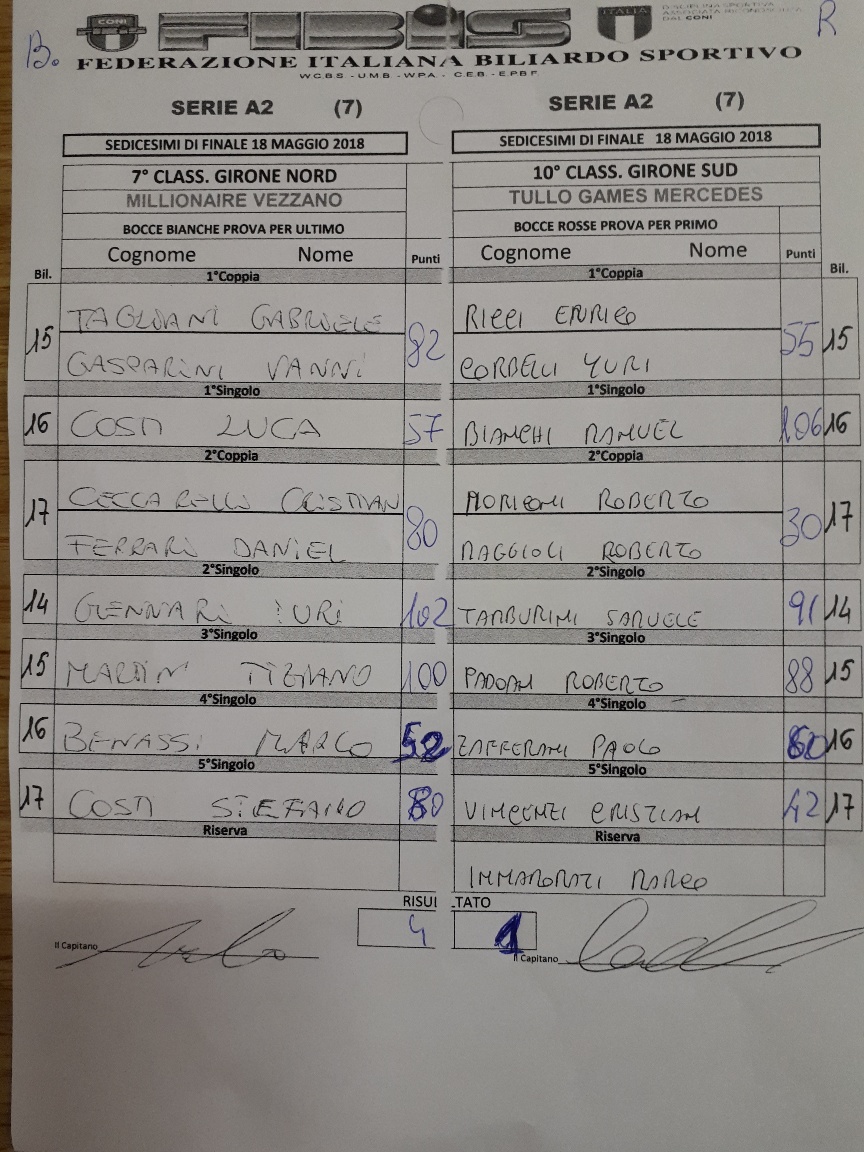 B. CONI FIBIS ITALIA R
FEDERAZIONE ITALIANA BILIARDO SPORTIVO
WCBS - UMB - WPA - CEB - EPBF
SERIE A2 (7) SERIE A2 (7)
SEDICESIMI DI FINALE 18 MAGGIO 2018 SEDICESIMI DI FINALE 18 MAGGIO 2018
7° CLASS. GIRONE NORD 10° CLASS. GIRONE SUD
MILLIONAIRE VEZZANO TULLO GAMES MERCEDES
BOCCE BIANCHE PROVA PER ULTIMO BOCCE ROSSE PROVA PER PRIMO
Bil. Cognome Nome Punti Cognome Nome Punti Bil.
1°Coppia 1°Coppia
15 TAGLIANI GABRIELE 82 RICCI ENRICO 55 15
GASPARINI VANNI CORBELLI YURI
1°Singolo 1°Singolo
16 COSTI LUCA 57 BIANCHI MANUEL 106 16
2°Coppia 2°Coppia
17 CECCARELLI CRISTIAN 80 MORICONI ROBERTO 30 17
FERRARI DANIEL MAGGIOLI ROBERTO
2°Singolo 2°Singolo
14 GENNARI IURI 102 TAMBURINI SAMUELE 91 14
3°Singolo 3°Singolo
15 MARTIN TIZIANO 100 PADOAN ROBERTO 88 15
4°Singolo 4°Singolo
16 BENASSI MARCO 52 ZAFFERANI PAOLO 60 16
5°Singolo 5°Singolo
17 COSTI STEFANO 80 VINCENZI CRISTIAN 42 17
Riserva Riserva
IMMAORATI MARCO
RISULTATO
4 1
Il Capitano Il Capitano